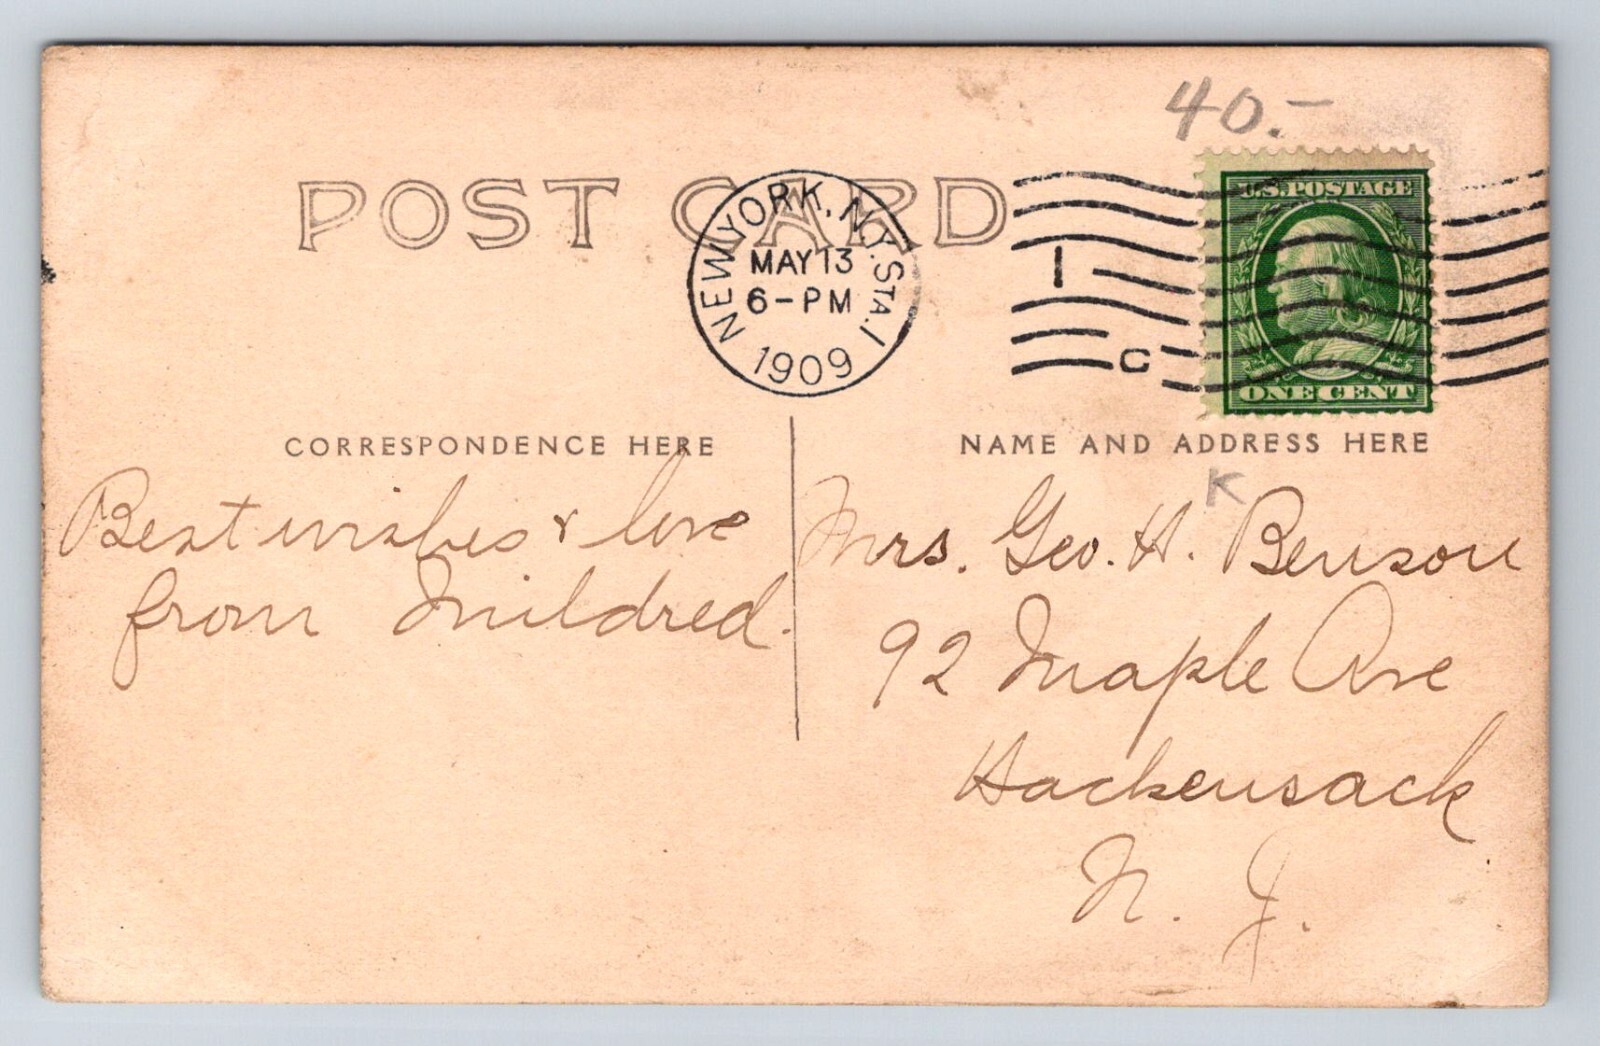 40.-
POST CARD
NEW YORK, N.Y. STA. I
MAY 13
6-PM
1909
I
C
U.S. POSTAGE
ONE CENT
CORRESPONDENCE HERE
Best wishes & love
from Mildred.
NAME AND ADDRESS HERE
K
Mrs. Geo. H. Benson
92 Maple Ave
Hackensack
N. J.